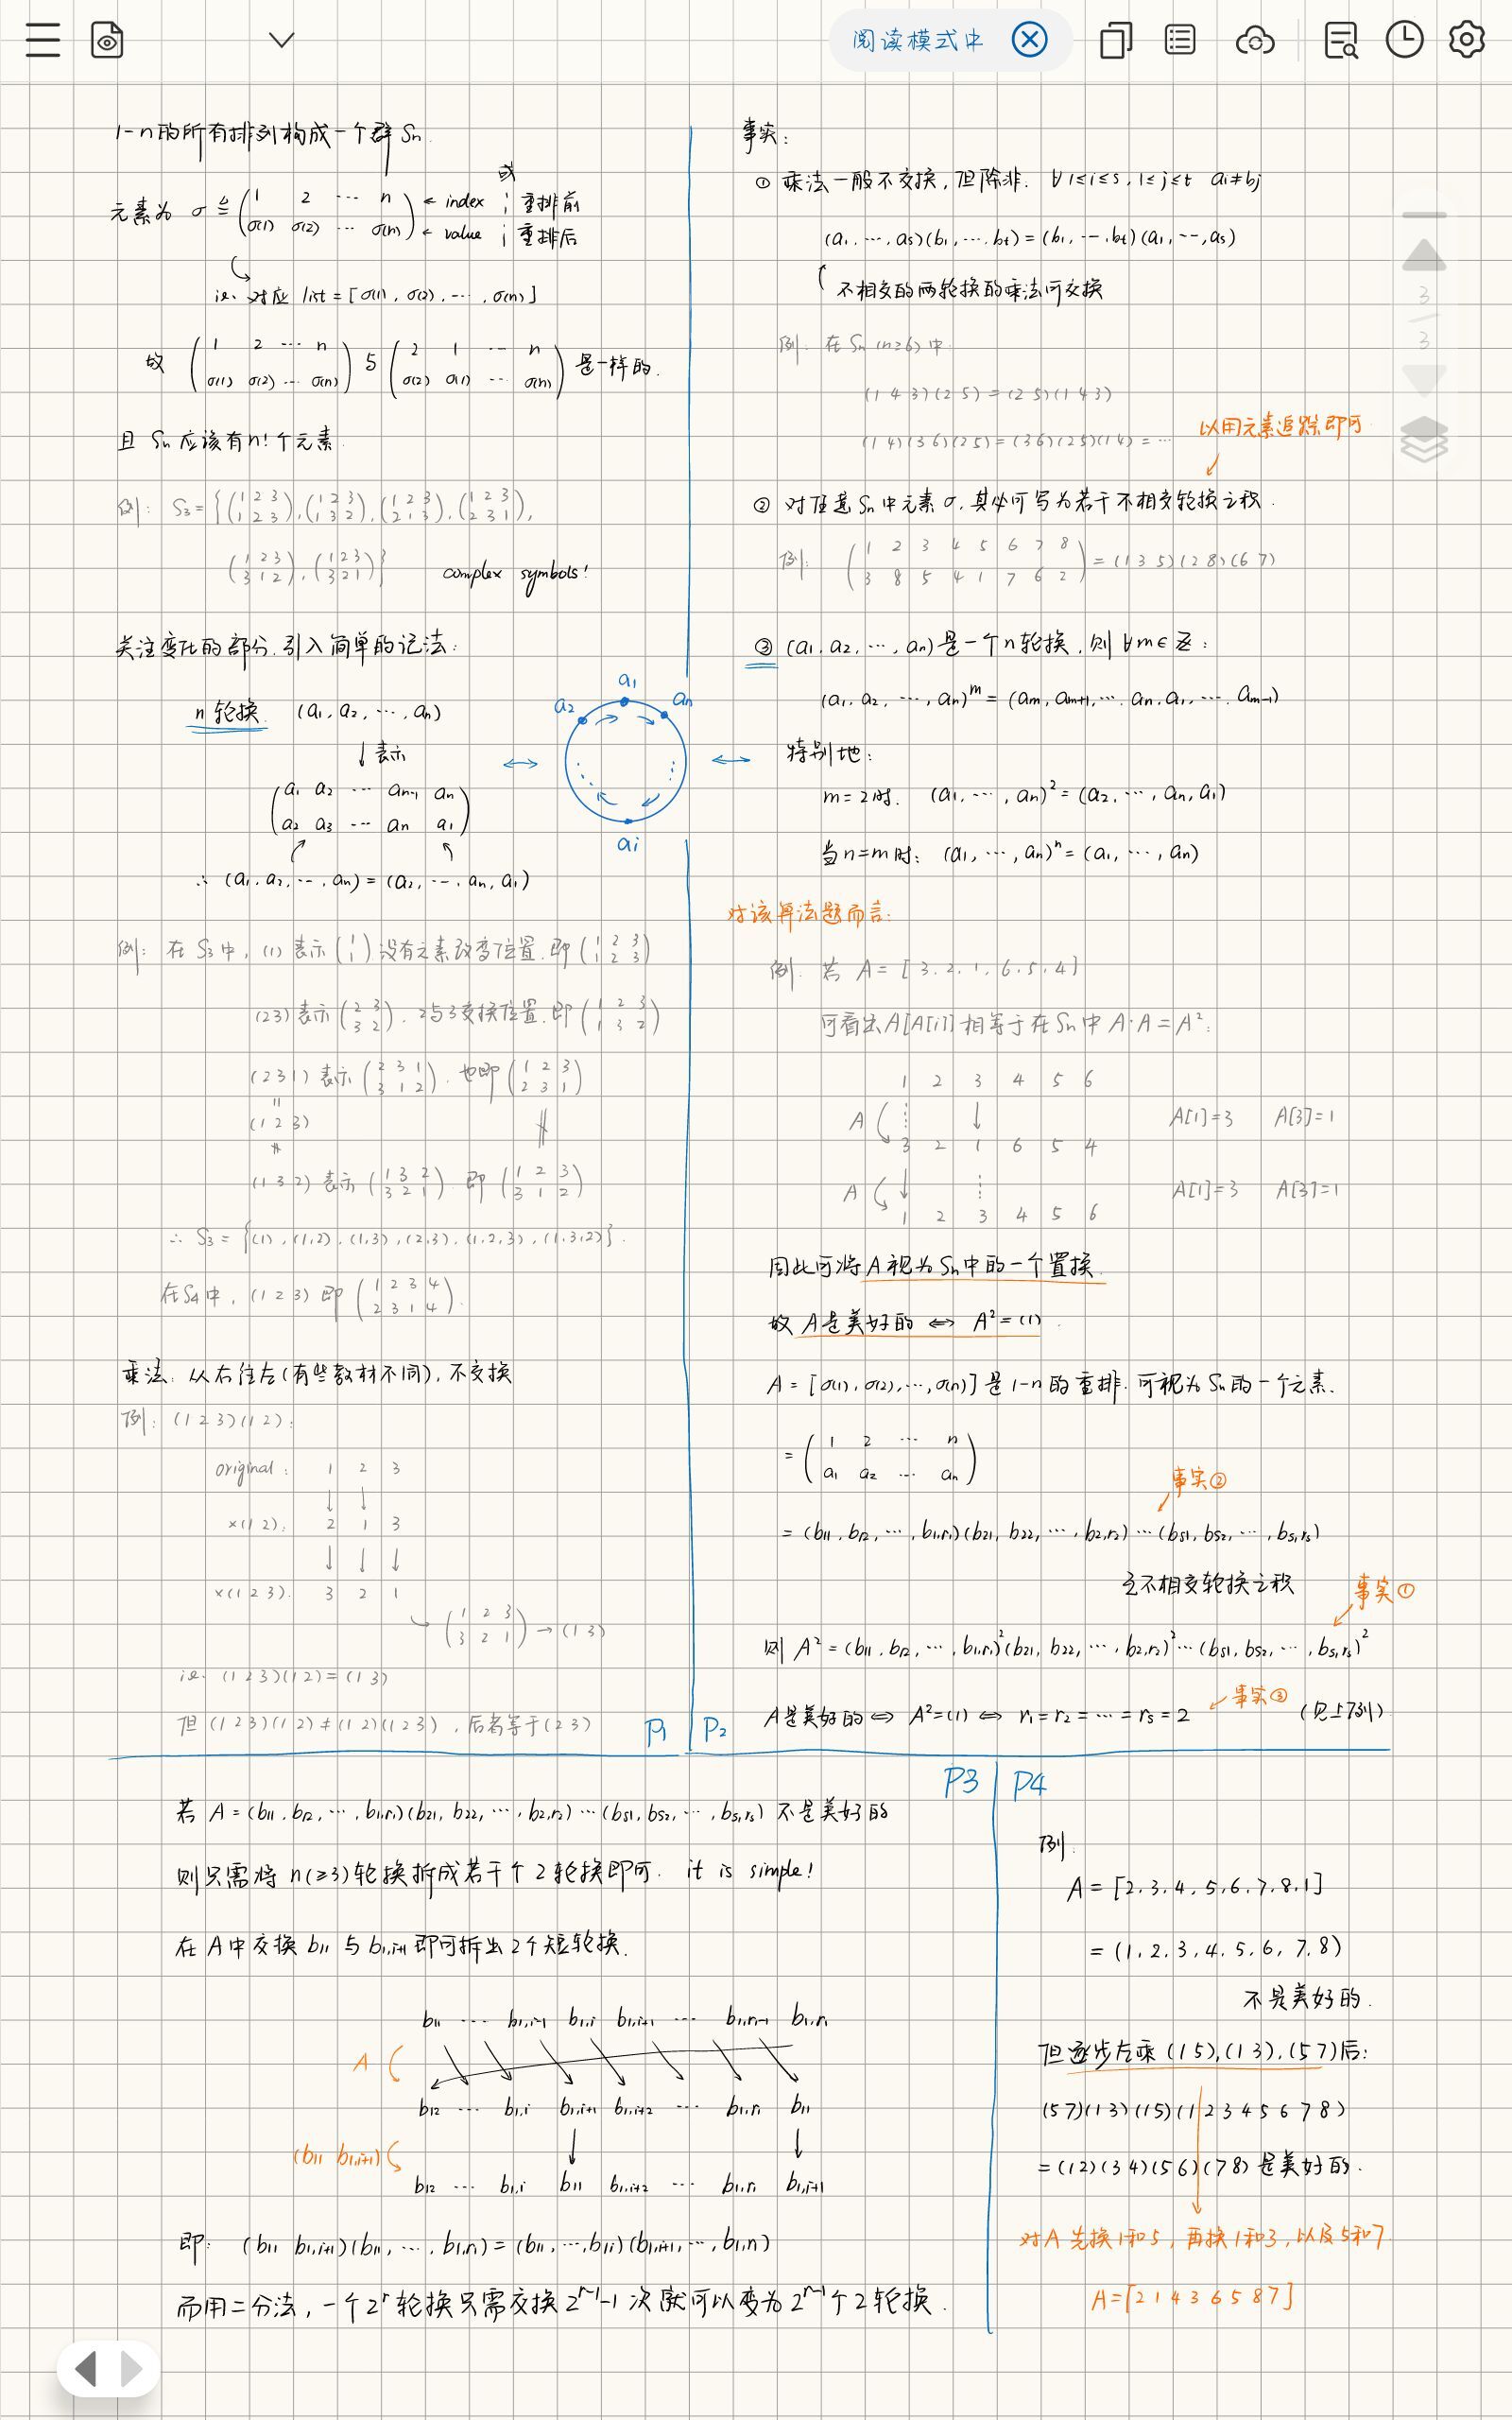 阅读模式中
1-n的所有排列构成一个群 Sn.
元素为 σ ≜ ( 1 2 ⋯ n ) ← index 或 重排前
( σ(1) σ(2) ⋯ σ(n) ) ← value 重排后
i.e. 对应 list = [σ(1), σ(2), ⋯, σ(n)]
故 ( 1 2 ⋯ n / σ(1) σ(2) ⋯ σ(n) ) 与 ( 2 1 ⋯ n / σ(2) σ(1) ⋯ σ(n) ) 是一样的.
且 Sn 应该有n!个元素.
例: S3 = { (1 2 3 / 1 2 3), (1 2 3 / 1 3 2), (1 2 3 / 2 1 3), (1 2 3 / 2 3 1),
(1 2 3 / 3 1 2), (1 2 3 / 3 2 1) } complex symbols!
关注变化的部分, 引入简单的记法:
n轮换. (a1, a2, ⋯, an)
↓表示
( a1 a2 ⋯ an-1 an / a2 a3 ⋯ an a1 )
∴ (a1, a2, ⋯, an) = (a2, ⋯, an, a1)
a1
a2
an
ai
例: 在 S3 中, (1) 表示 (1 / 1) 没有元素改变位置, 即 (1 2 3 / 1 2 3)
(2 3) 表示 (2 3 / 3 2), 2与3交换位置, 即 (1 2 3 / 1 3 2)
(2 3 1) 表示 (2 3 1 / 3 1 2), 也即 (1 2 3 / 2 3 1)
=
(1 2 3)
≠ ≠
(1 3 2) 表示 (1 3 2 / 3 2 1) 即 (1 2 3 / 3 1 2)
∴ S3 = {(1), (1,2), (1,3), (2,3), (1,2,3), (1,3,2)}.
在S4中, (1 2 3) 即 (1 2 3 4 / 2 3 1 4).
乘法: 从右往左(有些教材不同), 不交换
例: (1 2 3)(1 2):
original: 1 2 3
×(1 2): 2 1 3
×(1 2 3): 3 2 1
→ (1 2 3 / 3 2 1) → (1 3)
i.e. (1 2 3)(1 2) = (1 3)
但 (1 2 3)(1 2) ≠ (1 2)(1 2 3), 后者等于(2 3)
P1
事实:
① 乘法一般不交换, 但除非. ∀ 1≤i≤s, 1≤j≤t ai≠bj
(a1, ⋯, as)(b1, ⋯, bt) = (b1, ⋯, bt)(a1, ⋯, as)
不相交的两轮换的乘法可交换
例. 在 Sn (n≥6) 中
(1 4 3)(2 5) = (2 5)(1 4 3)
(1 4)(3 6)(2 5) = (3 6)(2 5)(1 4) = ⋯
以用元素追踪即可
② 对任意 Sn 中元素 σ, 其必可写为若干不相交轮换之积.
例: (1 2 3 4 5 6 7 8 / 3 8 5 4 1 7 6 2) = (1 3 5)(2 8)(6 7)
③ (a1, a2, ⋯, an) 是一个n轮换, 则 ∀m∈Z:
(a1, a2, ⋯, an)^m = (am, am+1, ⋯, an, a1, ⋯, am-1)
特别地:
m=2时. (a1, ⋯, an)² = (a2, ⋯, an, a1)
当n=m时: (a1, ⋯, an)^n = (a1, ⋯, an)
对该算法题而言:
例. 若 A = [3, 2, 1, 6, 5, 4]
可看出A[A[i]]相等于在Sn中 A·A = A²:
1 2 3 4 5 6
A A[1]=3 A[3]=1
3 2 1 6 5 4
A A[1]=3 A[3]=1
1 2 3 4 5 6
因此可将A视为Sn中的一个置换.
故 A是美好的 ⇔ A² = (1).
A = [σ(1), σ(2), ⋯, σ(n)] 是 1-n 的重排, 可视为 Sn 的一个元素.
= (1 2 ⋯ n / a1 a2 ⋯ an)
事实②
= (b11, b12, ⋯, b1,r1)(b21, b22, ⋯, b2,r2) ⋯ (bs1, bs2, ⋯, bs,rs)
之不相交轮换之积
事实①
则 A² = (b11, b12, ⋯, b1,r1)²(b21, b22, ⋯, b2,r2)² ⋯ (bs1, bs2, ⋯, bs,rs)²
A是美好的 ⇔ A²=(1) ⇔ r1=r2=⋯=rs=2 事实③ (见上例)
P2
若 A = (b11, b12, ⋯, b1,r1)(b21, b22, ⋯, b2,r2) ⋯ (bs1, bs2, ⋯, bs,rs) 不是美好的
则只需将 n(≥3)轮换拆成若干个2轮换即可. it is simple!
在A中交换 b11 与 b1,i+1 即可拆出2个短轮换.
b11 ⋯ b1,i-1 b1,i b1,i+1 ⋯ b1,n-1 b1,n
A
b12 ⋯ b1,i b1,i+1 b1,i+2 ⋯ b1,n b11
(b11 b1,i+1)
b12 ⋯ b1,i b11 b1,i+2 ⋯ b1,n b1,i+1
即: (b11 b1,i+1)(b11, ⋯, b1,n) = (b11, ⋯, b1i)(b1,i+1, ⋯, b1,n)
而用二分法, 一个2^r轮换只需交换 2^(r-1)-1 次就可以变为 2^(r-1)个2轮换.
P3
P4
例.
A = [2, 3, 4, 5, 6, 7, 8, 1]
= (1, 2, 3, 4, 5, 6, 7, 8)
不是美好的.
但逐步左乘 (1 5), (1 3), (5 7)后:
(5 7)(1 3)(1 5)(1 2 3 4 5 6 7 8)
= (1 2)(3 4)(5 6)(7 8) 是美好的.
对A先换1和5, 再换1和3, 以及5和7
A = [2 1 4 3 6 5 8 7]
3
3